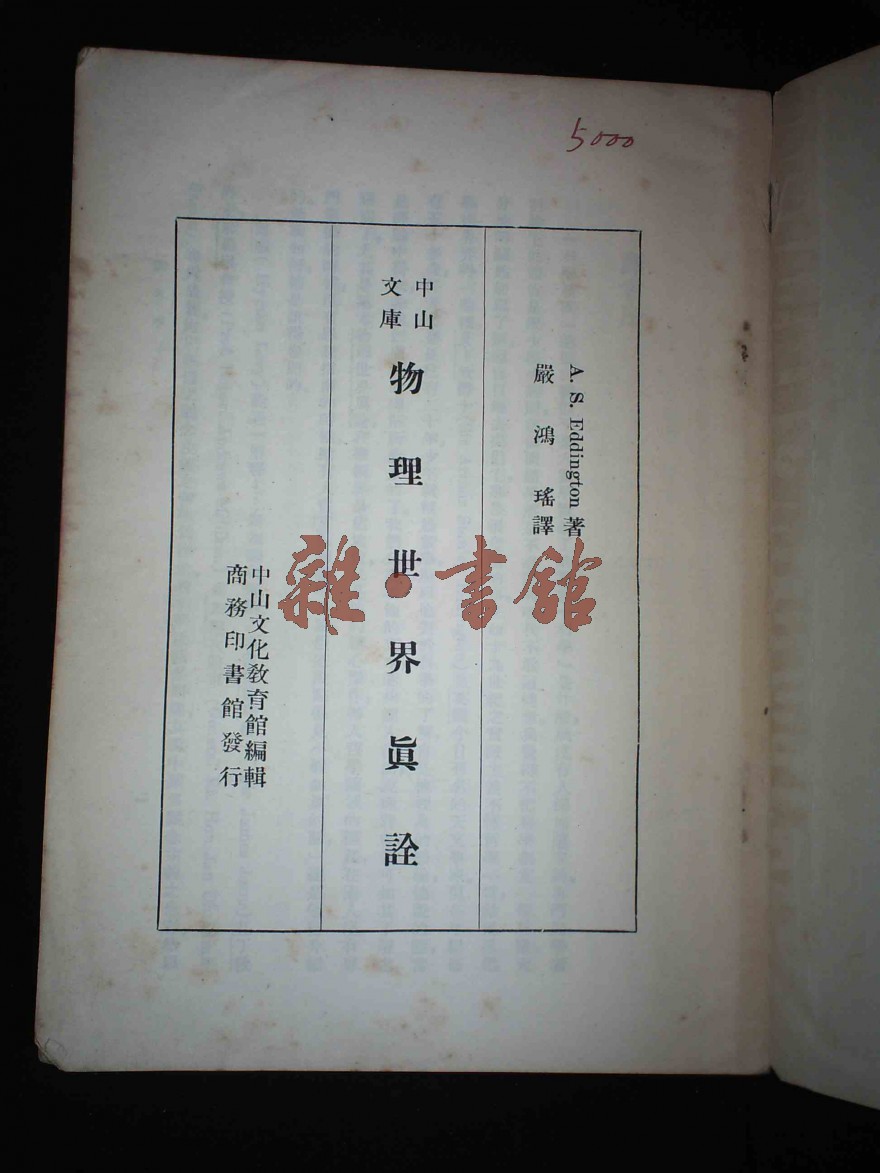 5000
A. S. Eddington 著
嚴鴻瑤譯
中山
文庫
物理世界眞詮
中山文化敎育館編輯
商務印書館發行
雜·書館